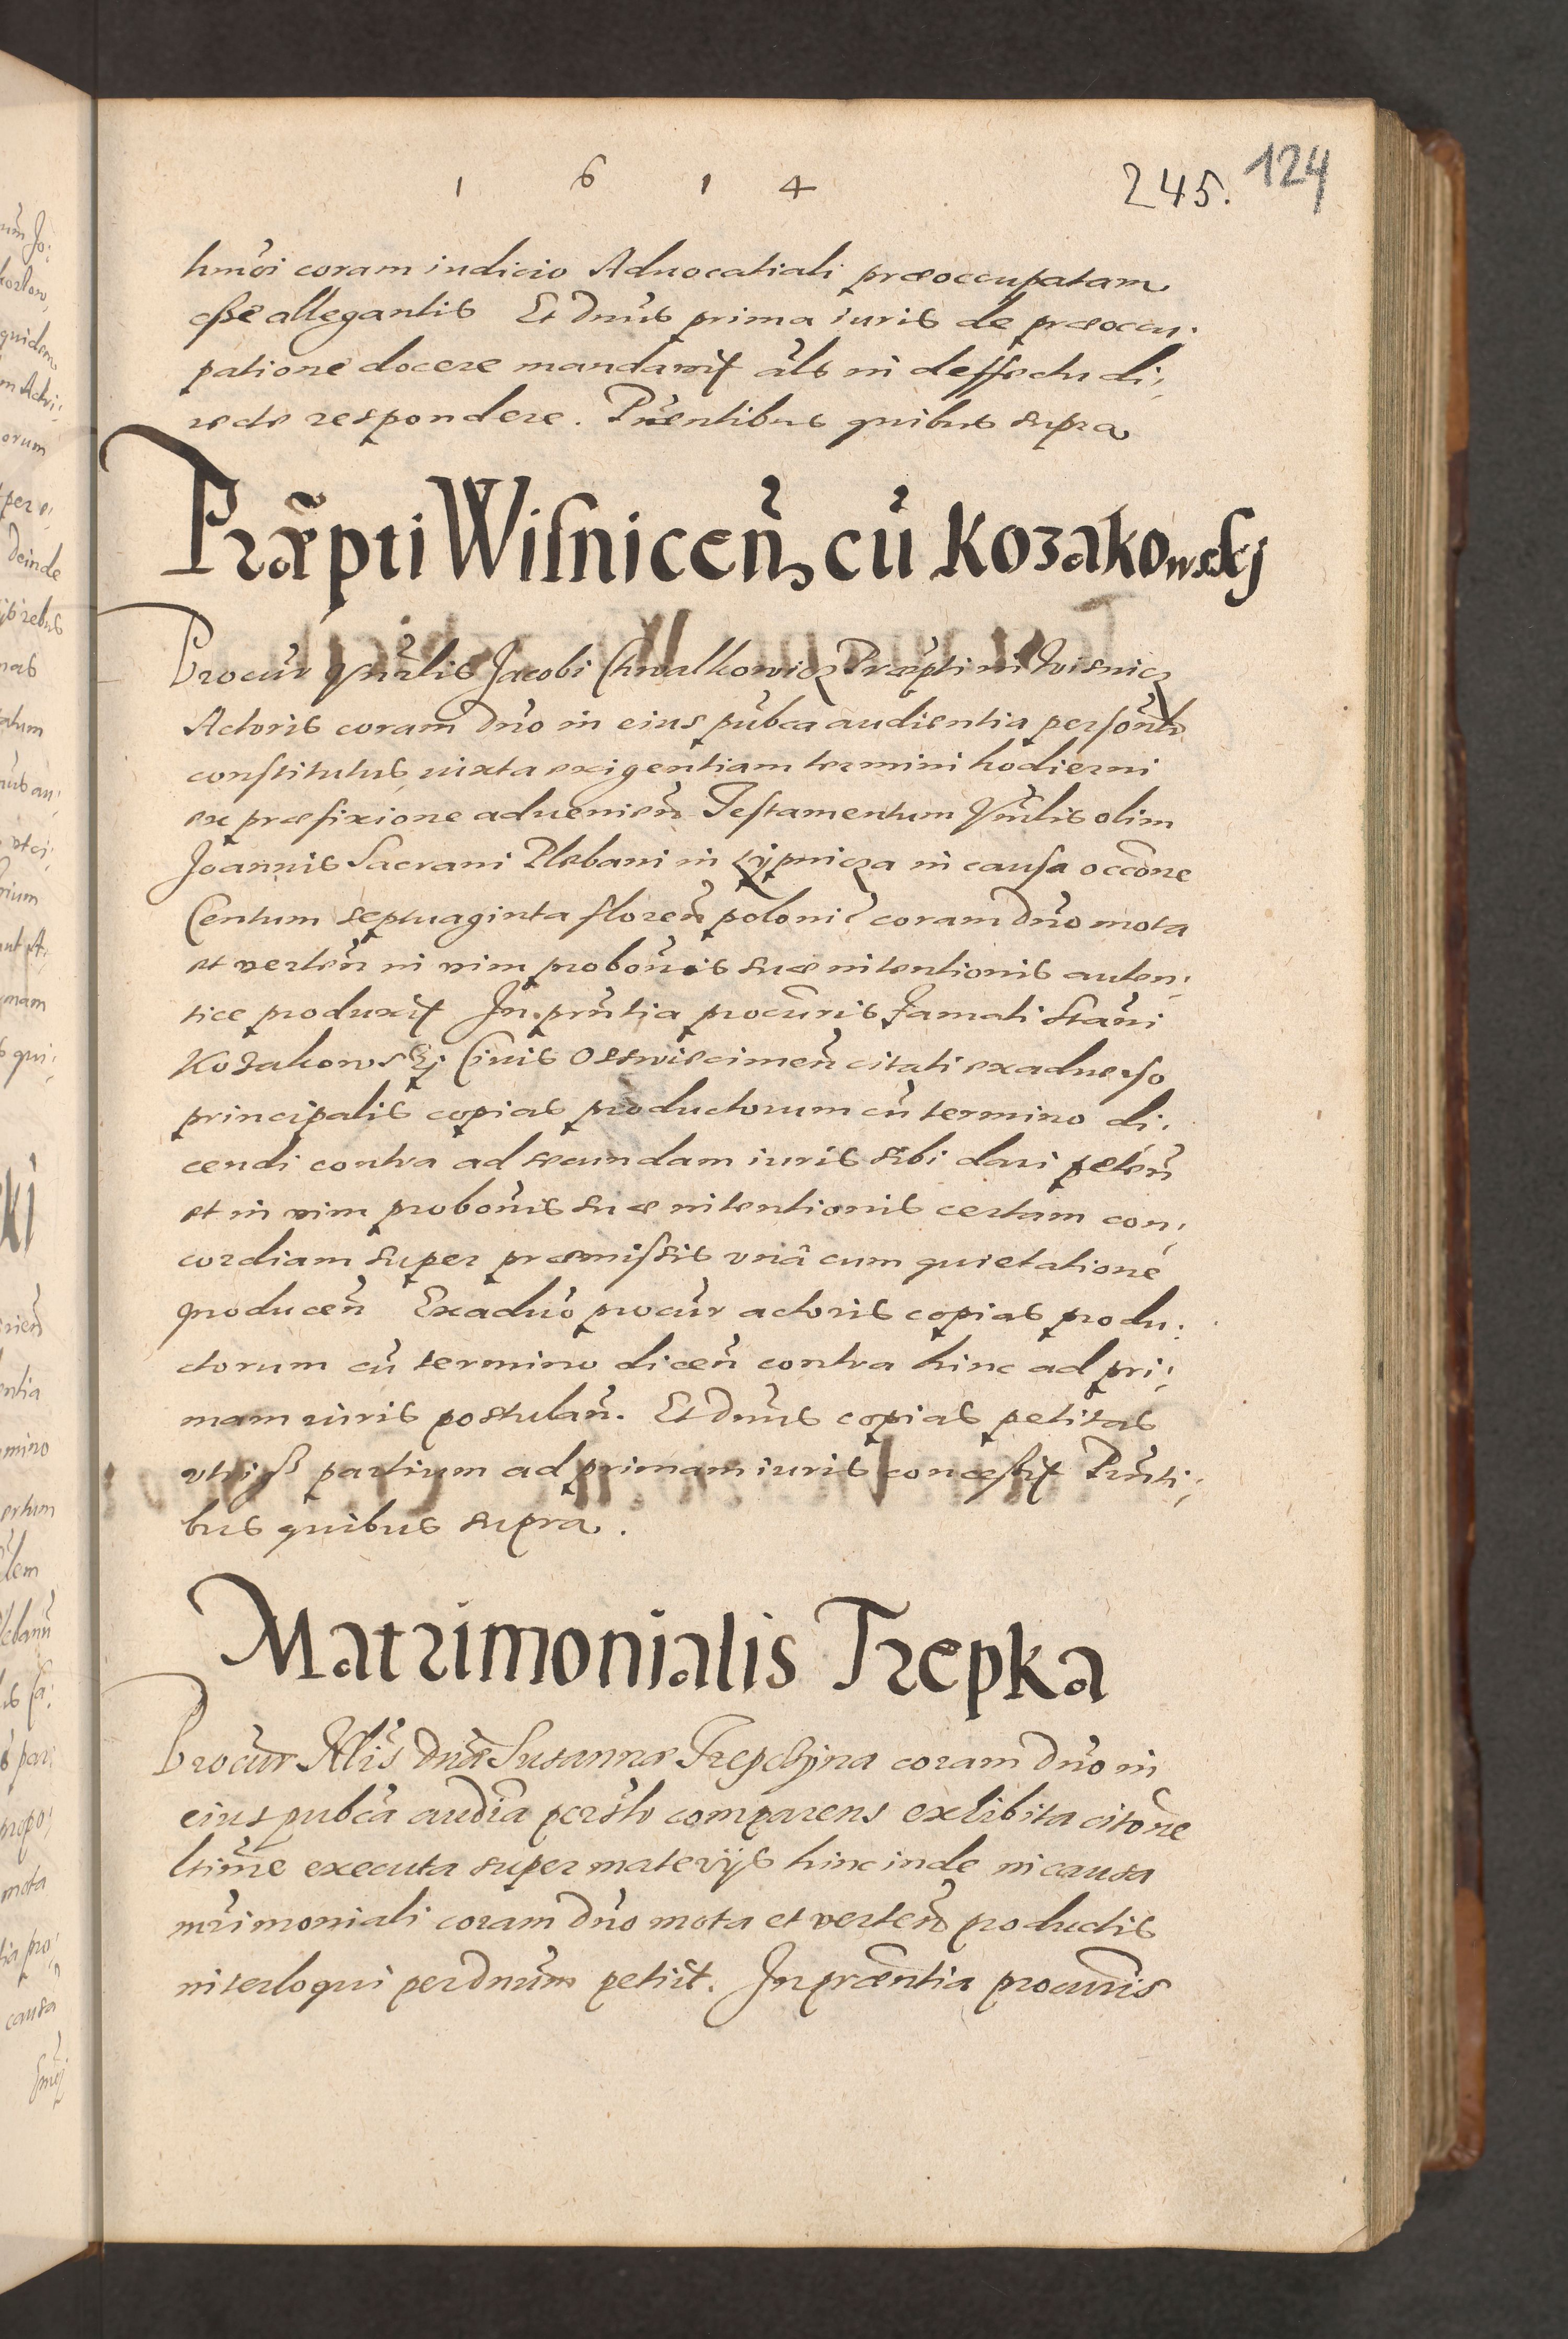 1 6 1 4
245. 124
hmoi coram iudicio Aduocatiali præoccupatam
esse allegantis Et Dnus prima iuris de præoccu:
patione docere mandavit als in deffectu di:
recte respondere. Pñentibus quibus supra
Præpti Wisnicen̄ cū Kozakowskj
Procur gñalis Jacobi Chwalkowicz Præpti in Wisnicz
Actoris coram Dno in eius pubca audientia personlr
constitutus iuxta exigentiam termini hodierni
ex præfixione aduenien̄ Testamentum Vnlis olim
Joannis Sacrani Plebani in Lypnicza in causa occone
Centum septuaginta floren̄ poloni coram Dno mota
et verten̄ in vim probonis suæ intentionis auten:
tice produxit In pñtia procuris Famati Stani
Kozakowskj Ciuis Osswiecimen̄ citati exaduerso
principalis copias productorum cū termino di:
cendi contra ad secundam iuris sibi dari peten̄
et in vim probonis suæ intentionis certam con:
cordiam super præmissis vnâ cum quietatione
producen̄ Exaduo procur actoris copias produ:
ctorum cū termino dicen̄ contra hinc ad pri:
mam iuris postulan̄. Et Dnus copias petitas
vtriqz partium ad primam iuris concessit Pñti:
bus quibus supra.
Matrimonialis Trepka
Procur Dnæ Susannæ Trepchyna coram Dno in
eius pubca audia persolr comparens exhibita citone
ltime executa super materijs hinc inde in causa
mrimoniali coram Dno mota et verten̄ productis
interloqui per Dnum petiit. In præntia procuris